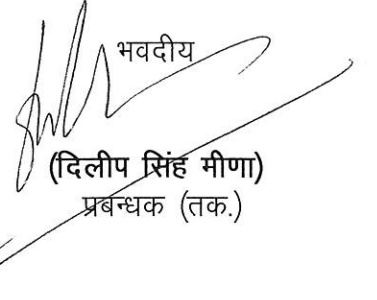 भवदीय
(दिलीप सिंह मीणा)
प्रबन्धक (तक.)